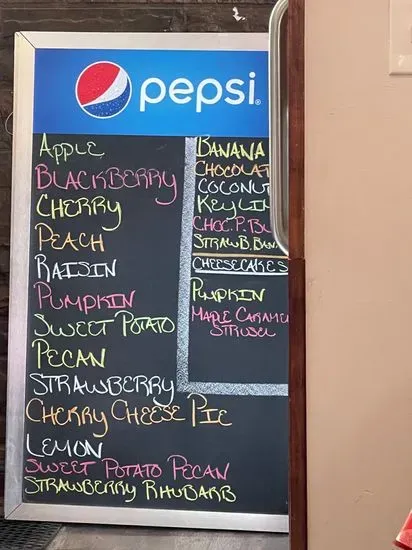 pepsi
Apple
Blackberry
Cherry
Peach
Raisin
Pumpkin
Sweet Potato
Pecan
Strawberry
Cherry Cheese Pie
Lemon
Sweet Potato Pecan
Strawberry Rhubarb
Banana
Chocolat
Coconut
Key Lim
Choc. P. Bu
Strawb. Ban
Cheesecakes
Pumpkin
Maple Carame
Strusel